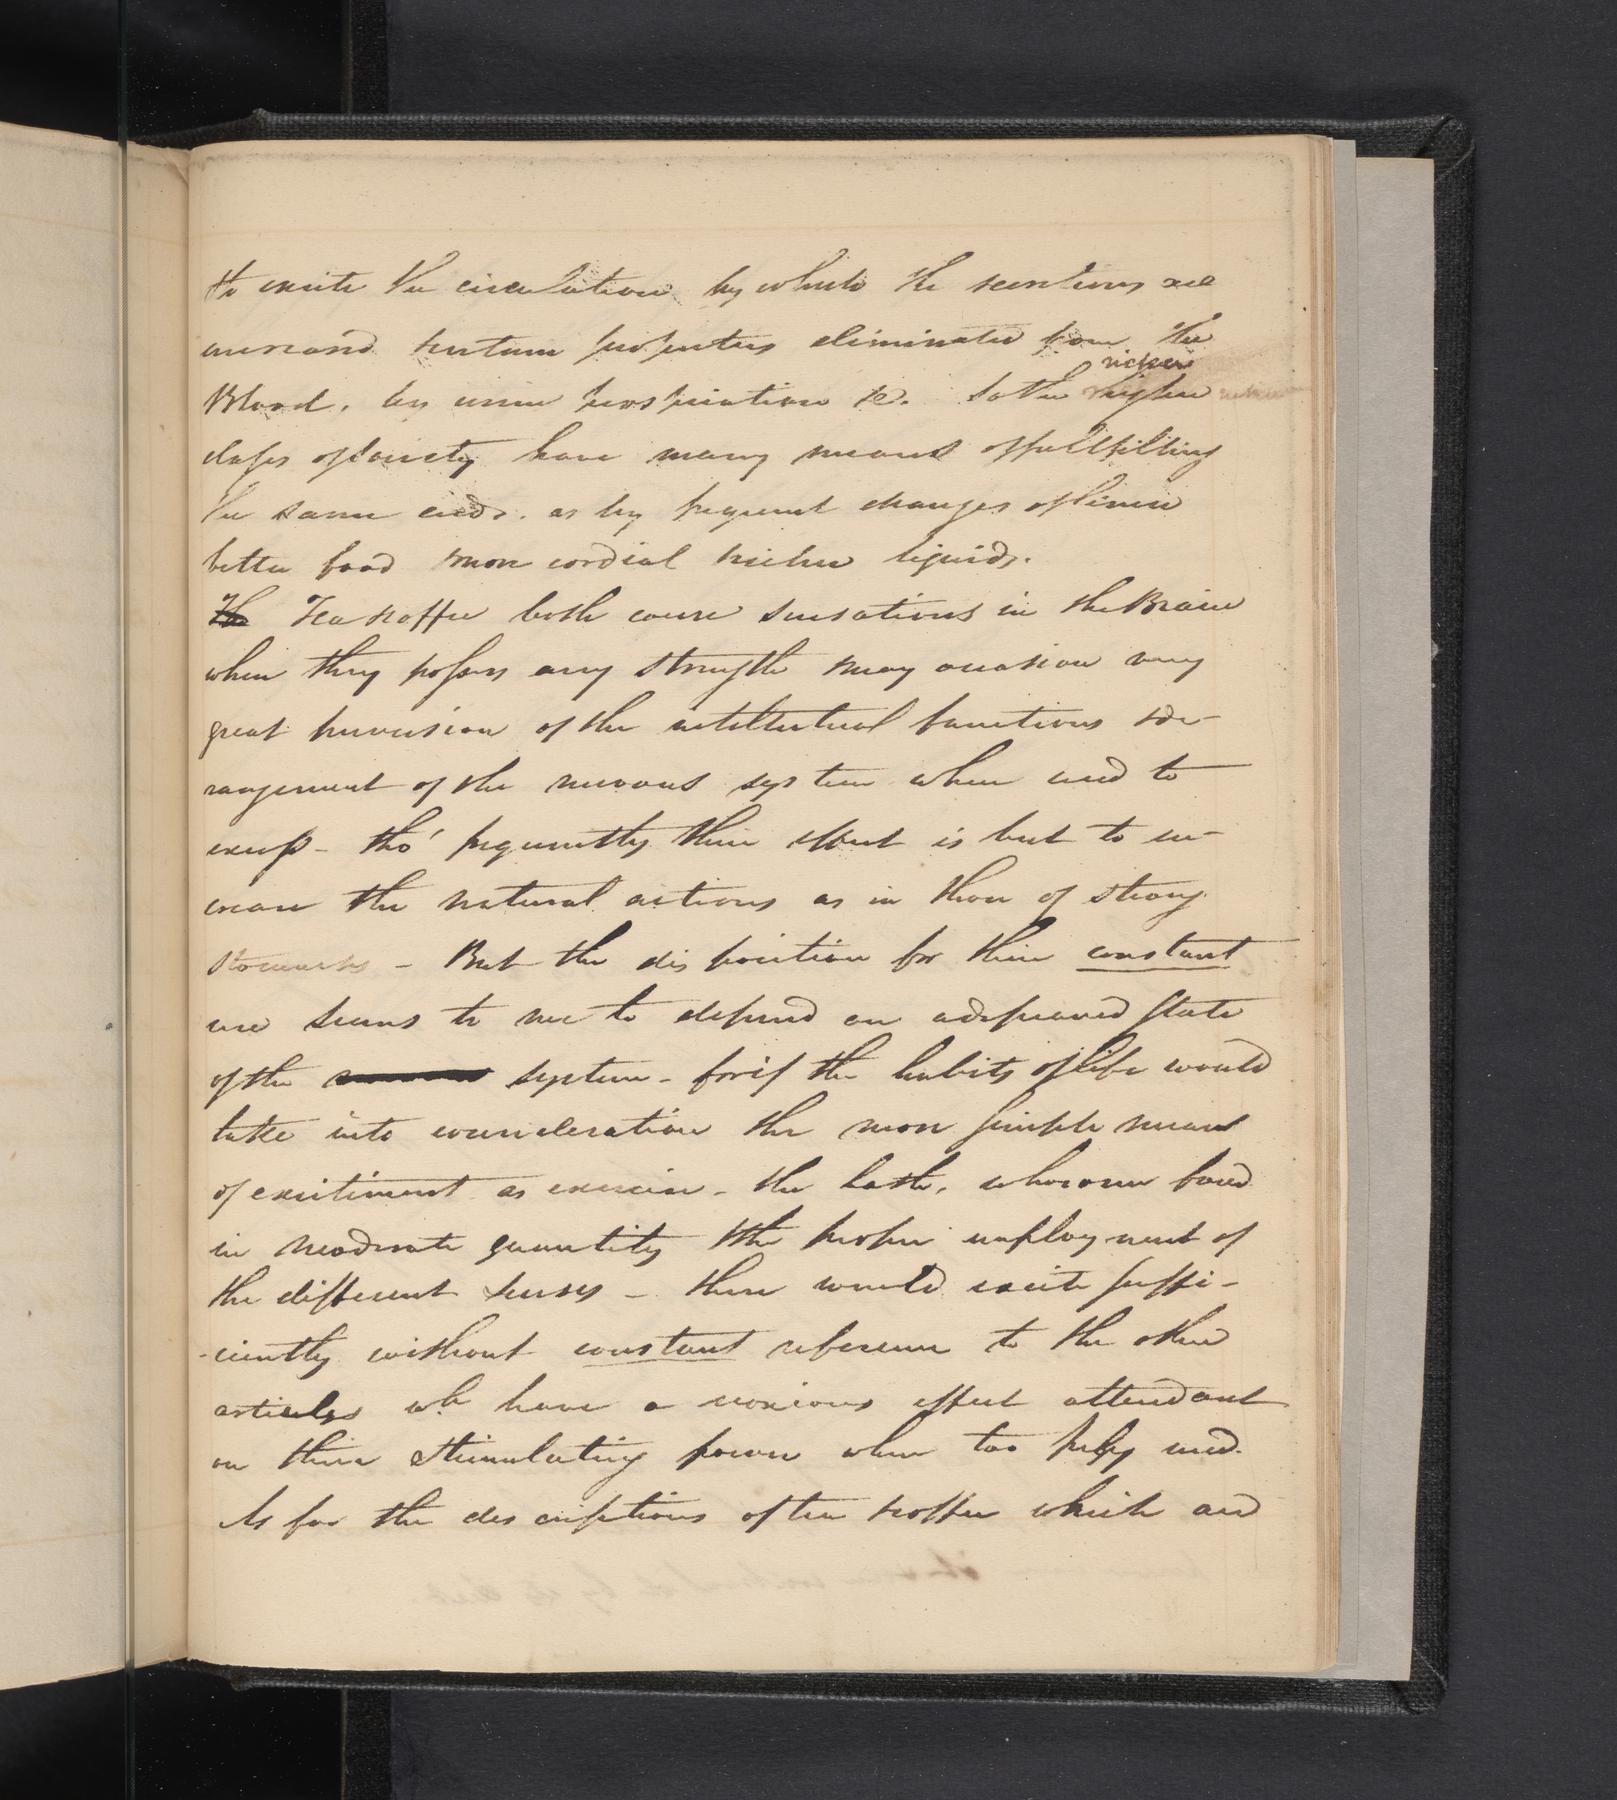 to excite the circulation by which the secretions are
increased certain properties eliminated from the
richer
Blood, by urine perspiration &c. So the higher
classes of society have many means of fullfilling
the same ends. as by frequent changes of linen
better food more cordial richer liquids.
The Tea & coffee both cause sensations in the Brain
when they possess any strength may occasion very
great perversion of the intellectual functions & de-
rangement of the nervous system when used to
excess - tho' frequently their effect is but to in-
crease the natural actions as in those of strong
stomachs - But the disposition for their constant
use seems to me to depend on a depraved state
of the system - for if the habits of life would
take into consideration the more simple means
of excitement as exercise - the bath, wholesome food
in moderate quantity & the proper employment of
the different senses - these would excite suffi-
-ciently without constant reference to the other
articles wh have a noxious effect attendant
on their stimulating power when too freely used.
As for the descriptions of tea & coffee which are